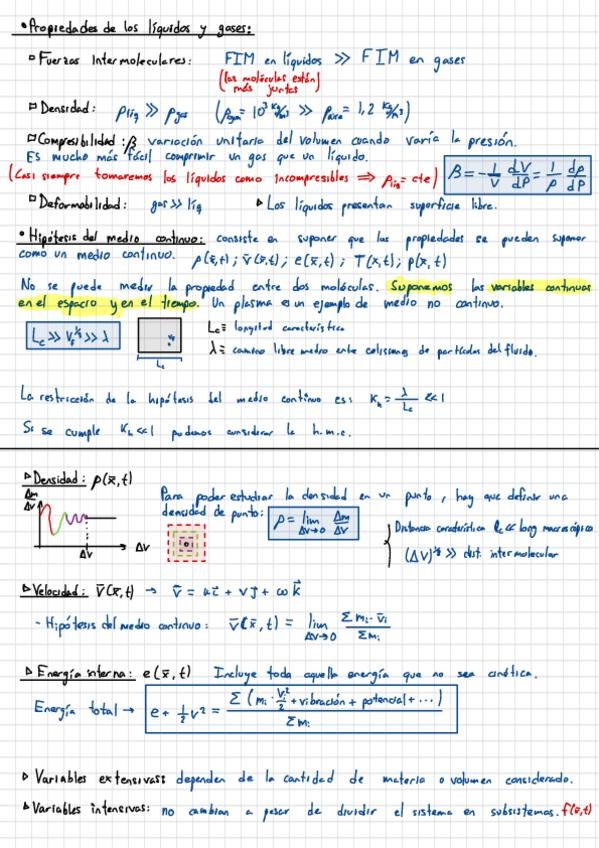 • Propiedades de los líquidos y gases:
▫ Fuerzas Intermoleculares: FIM en líquidos ≫ FIM en gases
(las moléculas están más juntas)
▫ Densidad: ρliq ≫ ρgas (ρagua = 10³ kg/m³ ≫ ρaire = 1,2 kg/m³)
▫ Compresibilidad: β variación unitaria del volumen cuando varía la presión.
Es mucho más fácil comprimir un gas que un líquido.
(Casi siempre tomaremos los líquidos como incompresibles ⇒ ρliq = cte)
β = - 1/V dV/dP = 1/ρ dρ/dP
▫ Deformabilidad: gas ≫ líq ▸ Los líquidos presentan superficie libre.
• Hipótesis del medio continuo: consiste en suponer que las propiedades se pueden suponer
como un medio continuo. ρ(x̄,t); v̄(x̄,t); e(x̄,t); T(x,t); p(x,t)
No se puede medir la propiedad entre dos moléculas. Suponemos las variables continuas
en el espacio y en el tiempo. Un plasma es un ejemplo de medio no continuo.
Lc ≫ Vf^1/3 ≫ λ
Vf
Lc
Lc ≡ longitud característica
λ ≡ camino libre medio entre colisiones de partículas del fluido.
La restricción de la hipótesis del medio continuo es: Kn = λ/Lc ≪ 1
Si se cumple Kn ≪ 1 podemos considerar la h.m.c.
▹ Densidad: ρ(x̄,t)
Δm/ΔV
ΔV
ΔV
Para poder estudiar la densidad en un punto, hay que definir una
densidad de punto: ρ = lim ΔV→0 Δm/ΔV
Distancia característica lc ≪ long macroscópica
(ΔV)^1/3 ≫ dist. intermolecular
▹ Velocidad: v̄(x̄,t) → v̄ = u i̅ + v j̅ + ω k̅
- Hipótesis del medio continuo: v̄(x̄,t) = lim ΔV→0 Σmi·v̄i / Σmi
▹ Energía interna: e(x̄,t) Incluye toda aquella energía que no sea cinética.
Energía total → e + 1/2 v² = Σ(mi · vi²/2 + vibración + potencial + ...) / Σmi
▹ Variables extensivas: dependen de la cantidad de materia o volumen considerado.
▹ Variables intensivas: no cambian a pesar de dividir el sistema en subsistemas. f(x̄,t)